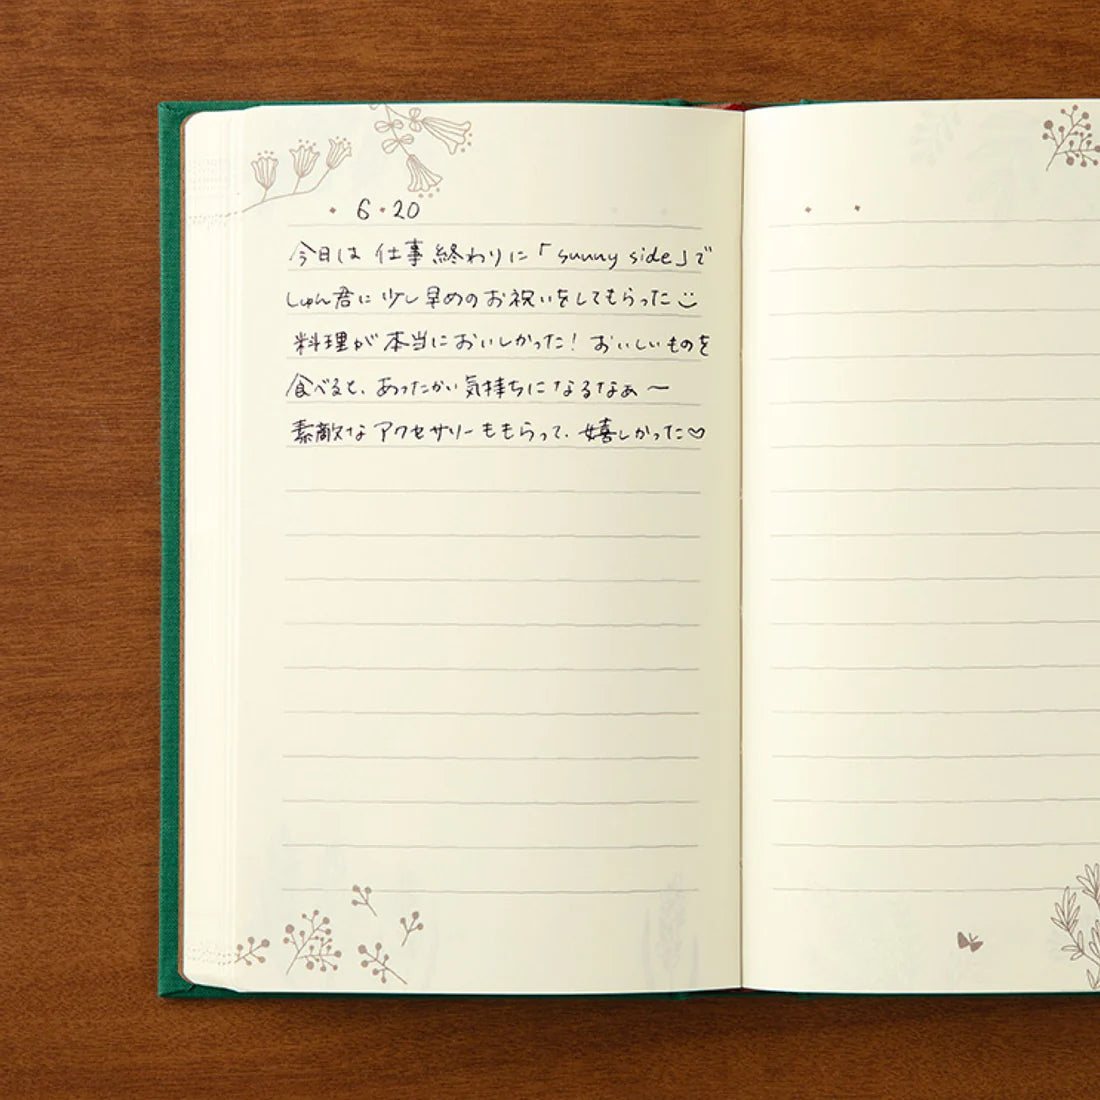 6・20
今日は仕事終わりに「sunny side」で
しゅん君に少し早めのお祝いをしてもらった
料理が本当においしかった！おいしいものを
食べると、あったかい気持ちになるなぁ〜
素敵なアクセサリーももらって、嬉しかった♡